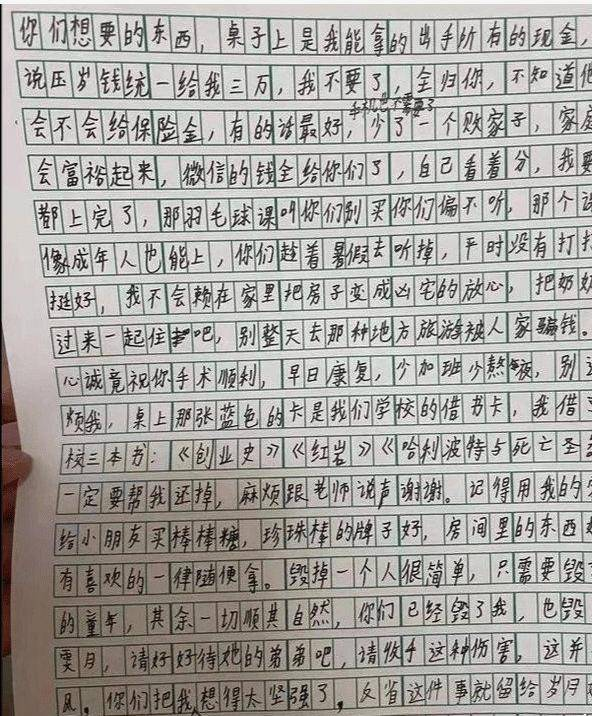 你们想要的东西，桌子上是我能拿的出手所有的现金，
说压岁钱统一给我三万，我不要了，全归你，不知道他
手机也不需要了
会不会给保险金，有的话最好，少了一个败家子，家庭
会富裕起来，微信的钱全给你们了，自己看着分，我要
都上完了，那羽毛球课叫你们别买你们偏不听，那个说
像成年人也能上，你们趁着暑假去听掉，平时没有打打
挺好，我不会赖在家里把房子变成凶宅的放心，把奶奶
过来一起住吧，别整天去那种地方旅游被人家骗钱。
心诚竟祝你手术顺利，早日康复，少加班少熬夜，别
烦我，桌上那张蓝色的卡是我们学校的借书卡，我借
校三本书：《创业史》《红岩》《哈利波特与死亡圣
一定要帮我还掉，麻烦跟老师说声谢谢。记得用我的
给小朋友买棒棒糖，珍珠棒的牌子好，房间里的东西
有喜欢的一律随便拿。毁掉一个人很简单，只需要毁
的童年，其余一切顺其自然，你们已经毁了我，也毁
雯月，请好好待她的弟弟吧，请收手这种伤害。这并
风。你们把我想得太坚强了，反省这件事就留给岁月